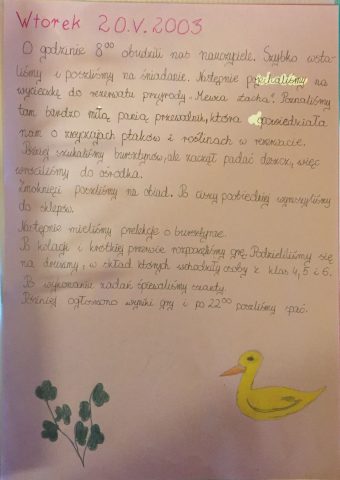 Wtorek 20.V.2003
O godzinie 8⁰⁰ obudzili nas nauczyciele. Szybko wsta-
liśmy i poszliśmy na śniadanie. Następnie pojechaliśmy na
wycieczkę do rezerwatu przyrody „Mewia Łacha". Poznaliśmy
tam bardzo miłą panią przewodnik, która opowiedziała
nam o zwyczajach ptaków i roślinach w rezerwacie.
Później szukaliśmy bursztynów, ale zaczął padać deszcz, więc
wróciliśmy do ośrodka.
Zmoknięci poszliśmy na obiad. Po ciszy poobiedniej wyruszyliśmy
do sklepów.
Następnie mieliśmy prelekcję o bursztynie.
Po kolacji i krótkiej przerwie rozpoczęliśmy grę. Podzieliliśmy się
na drużyny, w skład których wchodziły osoby z klas 4, 5 i 6.
Po wykonaniu zadań śpiewaliśmy szanty.
Później ogłoszono wyniki gry i po 22⁰⁰ poszliśmy spać.